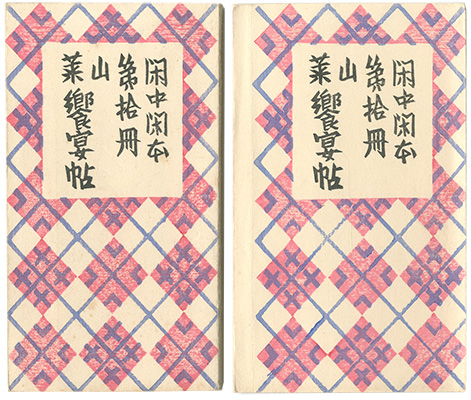 閑中閑本
第拾冊
山
菜饗宴帖
閑中閑本
第拾冊
山
菜饗宴帖